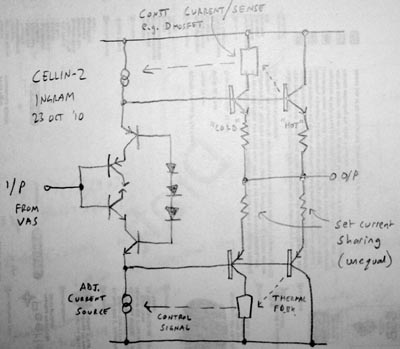 CONTT CURRENT/SENSE
e.g. DMOSFET
CELLINI-2
INGRAM
23 OCT '10
"COLD"
"HOT"
I/P
FROM
VAS
O/P
Set current
Sharing
(unequal)
ADJ.
CURRENT
SOURCE
CONTROL
SIGNAL
THERMAL